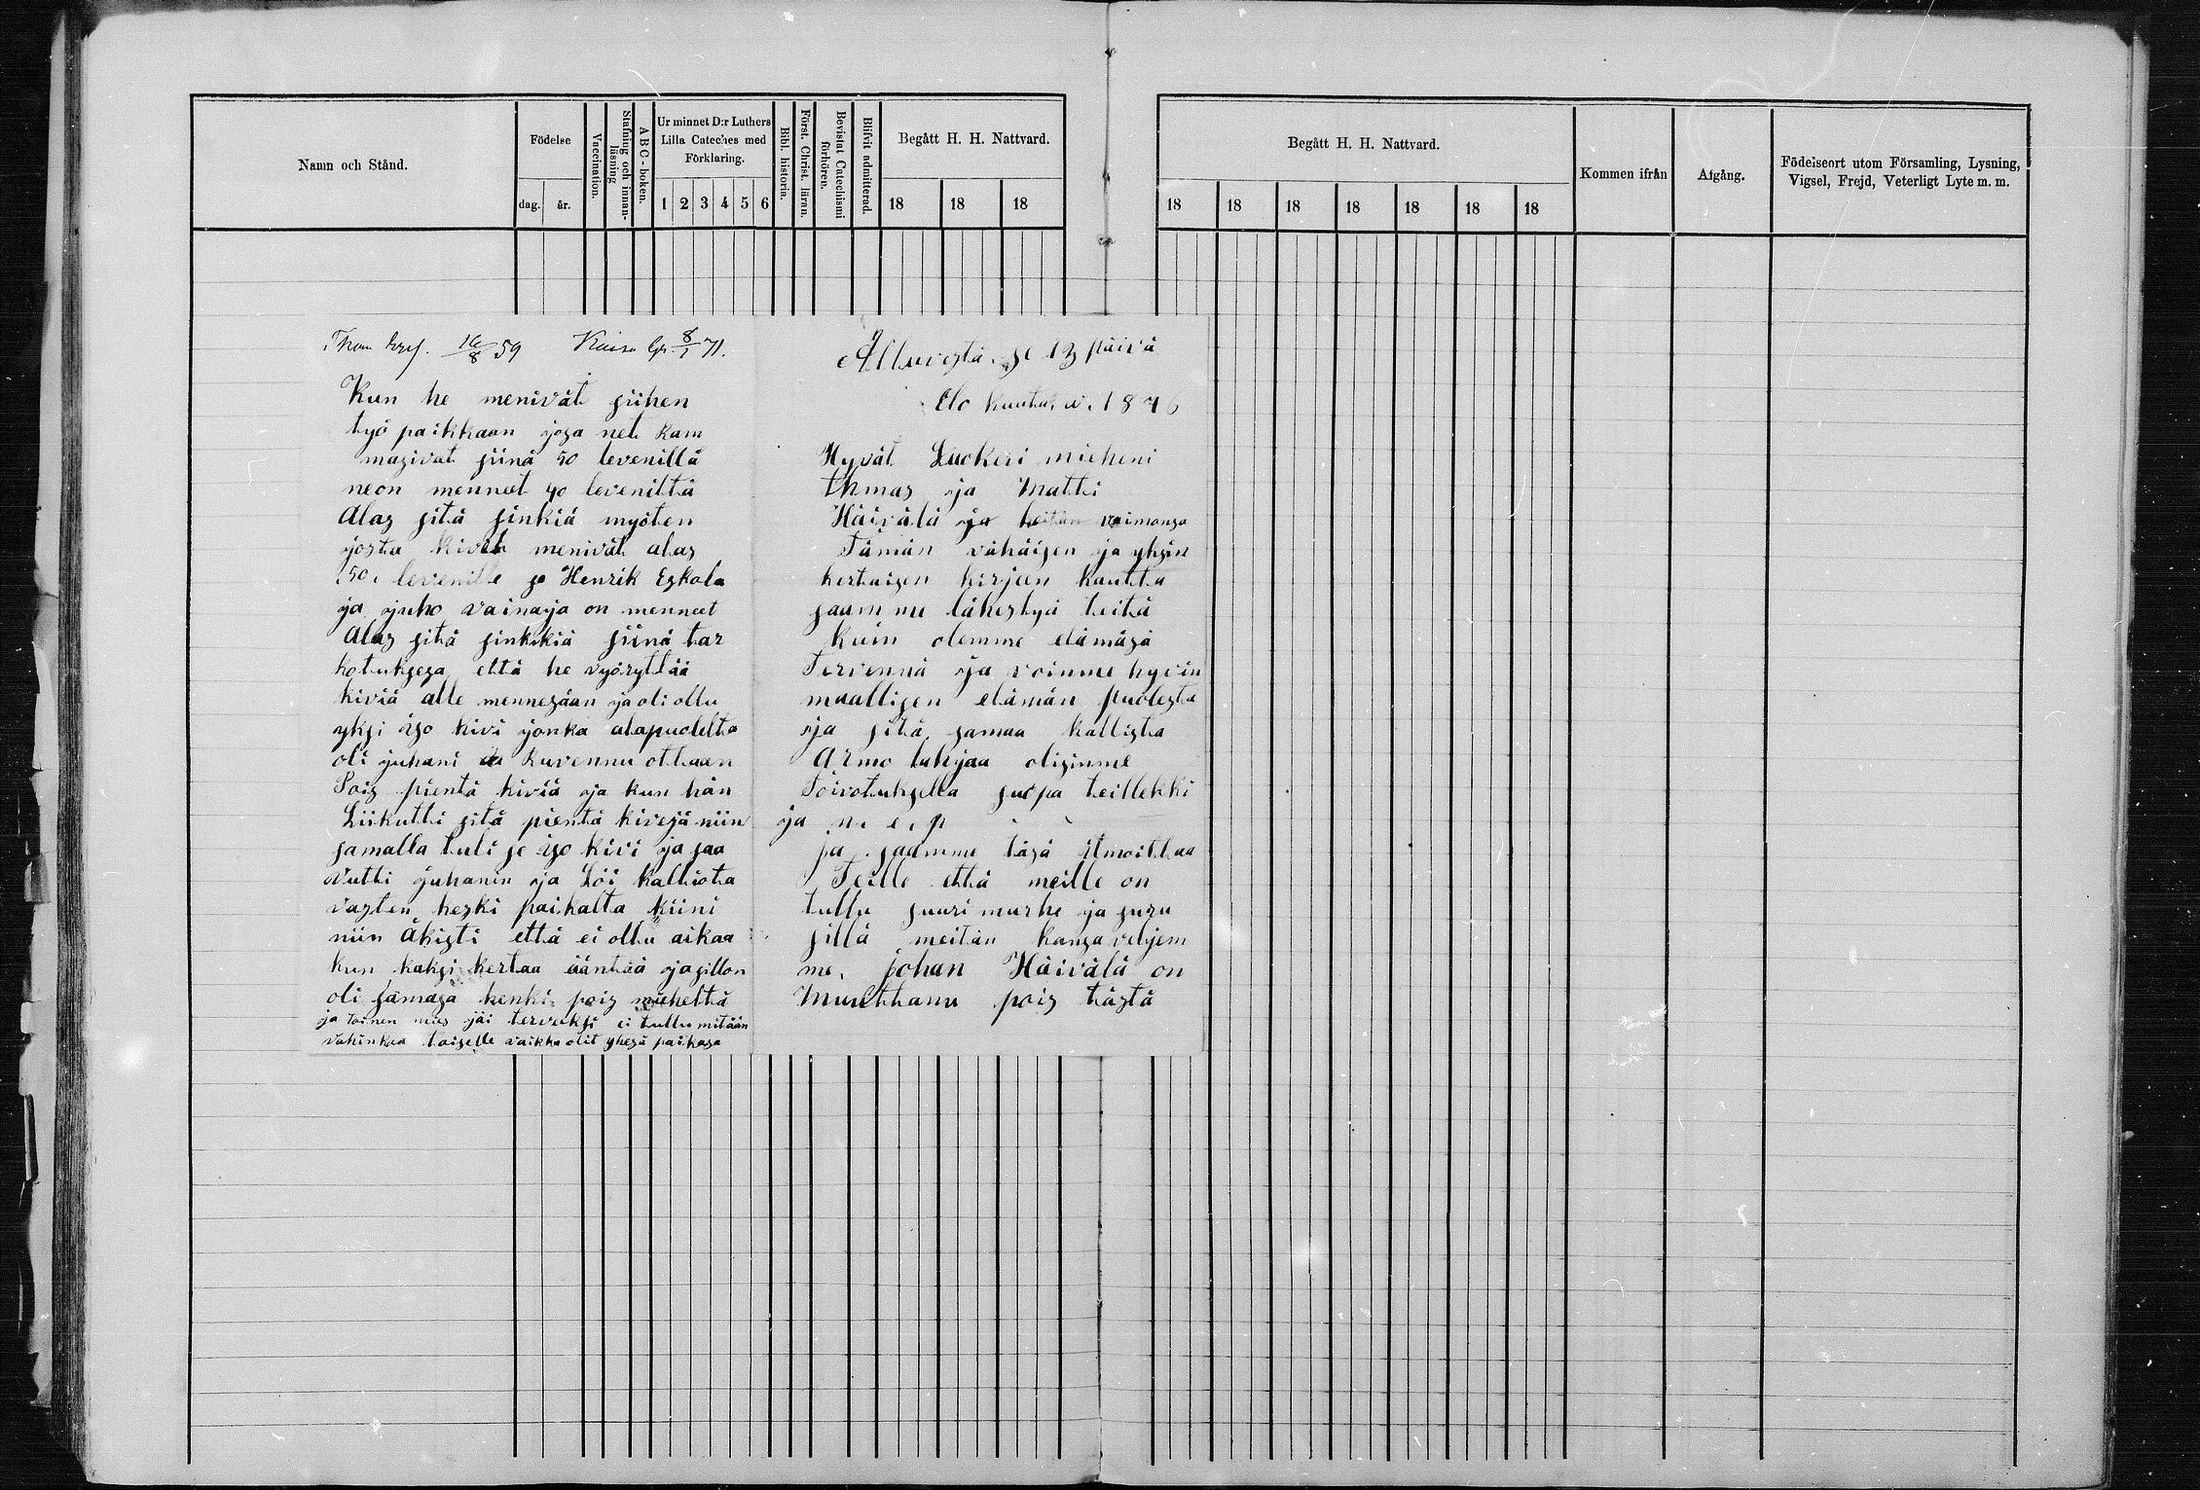 Namn och Stånd.
Födelse
dag.
år.
Vaccination.
Stafning och innan-
läsning
ABC-boken.
Ur minnet D:r Luthers
Lilla Cateches med
Förklaring.
1 2 3 4 5 6
Bibl. historia.
Först. Christ. läran.
Bevistat Catechismi
förhören.
Blifvit admitterad.
Begått H. H. Nattvard.
18 18 18
Begått H. H. Nattvard.
18 18 18 18 18 18 18
Kommen ifrån
Afgång.
Födelseort utom Församling, Lysning,
Vigsel, Frejd, Veterligt Lyte m. m.
16/8 59 8/1 71.
Kun he menivät siihen
työ paikkaan josa net kam
masivat siinä 50 levenillä
neon menneet 40 leveniltä
Alas sitä sinkiä myöten
josta kivet menivät alas
50 levenille se Henrik Eskola
ja juho vainaja on menneet
Alas sitä sinkkiä siinä tar
kotuksesa että he vyöryttää
kiviä alle mennesään ja oli ollu
yksi iso kivi jonka alapuolelta
oli juhani ruvennu ottaan
Pois pientä kiviä ja kun hän
Liikutti sitä pientä kivejä niin
samalla tuli se iso kivi ja saa
vutti juhanin ja Löi kalliota
vasten keski paikalta kiini
niin äkisti että ei ollu aikaa
kun kaksi kertaa ääntää ja sillon
oli samasa henki pois mieheltä
ja toinen mies jäi terveksi ei tullu mitään
vahinkoa toiselle vaikka olit yhesä paikasa
se 13 päivä
Elo kuuta w. 1876
Hyvät Luokeri mieheni
thmas ja Matti
Häivälä ja heitän vaimonsa
Tämän vähäisen ja yksin
kertaisen kirjeen kautta
saamme lähestyä teitä
kuin olemme elämäsä
Tervennä ja voimme hyvin
maallisen elämän puolesta
ja sitä samaa kallista
Armo lahjaa olisimme
Toivotuksella suopa teillekki
ja n. e. p
ja saamme täsä ilmoittaa
Teille että meille on
tullu suuri murhe ja suru
sillä meitän kansa veljem
me. johan Häivälä on
Muuttanu pois tästä